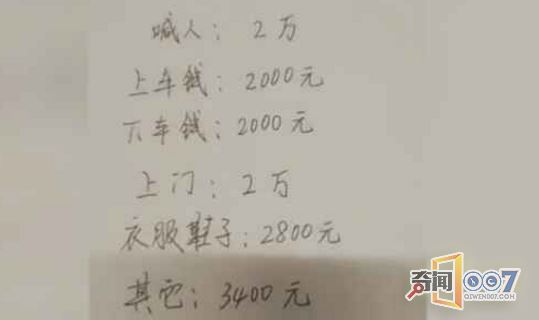 喊人：2万
上车钱：2000元
下车钱：2000元
上门：2万
衣服鞋子：2800元
其它：3400元
奇闻007
QIWEN007.COM